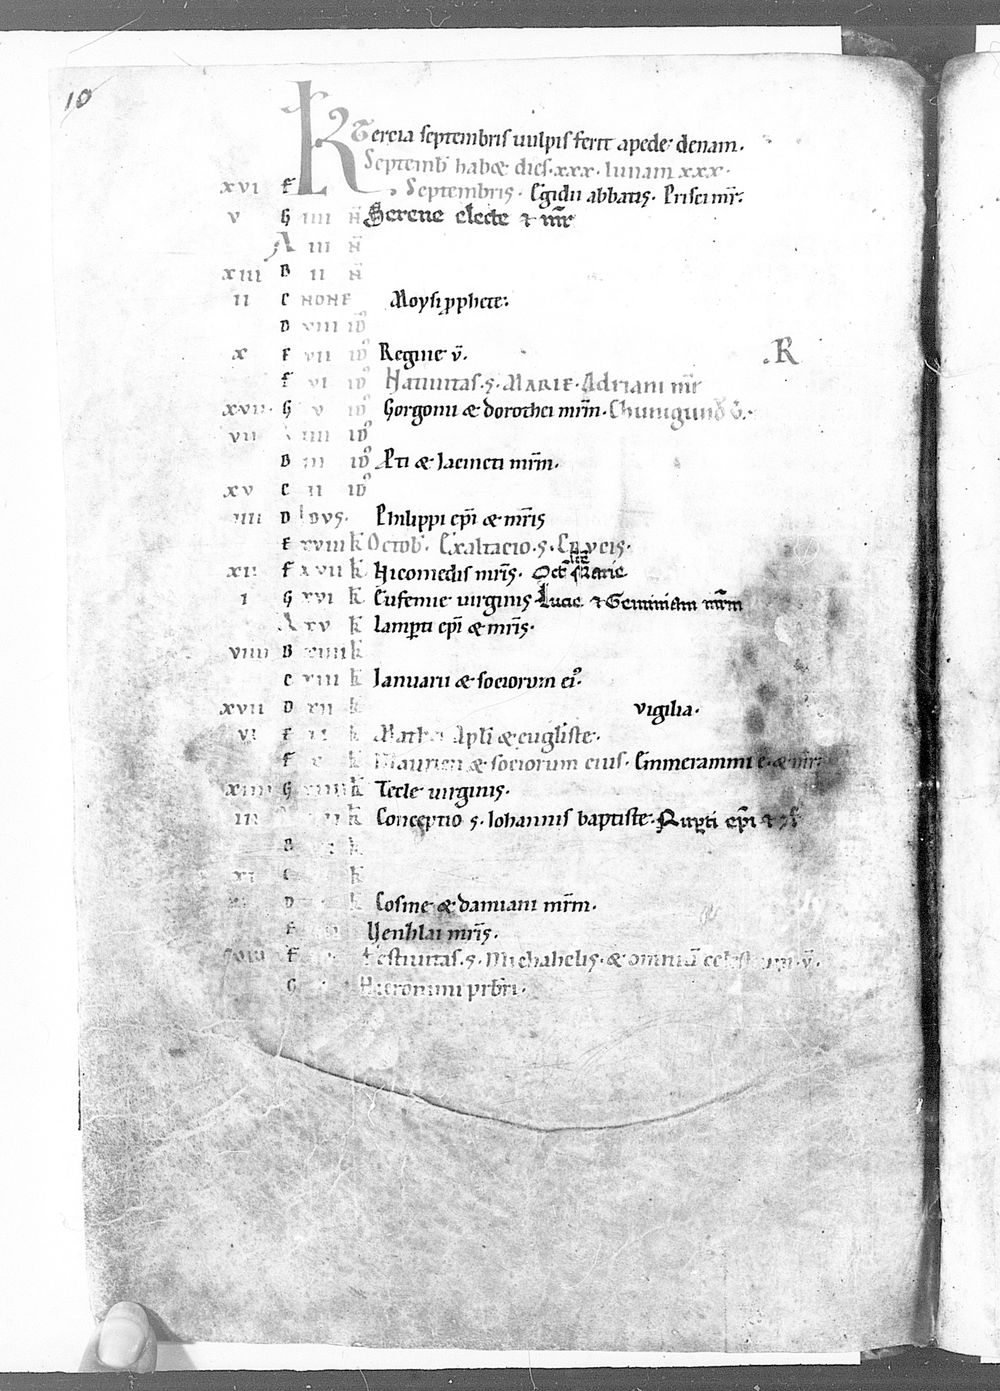 10
Tercia septembris vulpis ferit apede denam.
KL Septemb habet dies xxx. lunam xxx.
xvi F Septembris. Egidii abbatis. Prisci mr̄.
v G iiii N̄ Serene electe ⁊ mr̄
A iii N̄
xiii B ii N̄
ii C NONE Moysi pphete.
D viii id᷒
x E vii id᷒ Regine v̄. R
F vi id᷒ Natiuitas. s. MARIE. Adriani mr̄
xvii. G v id᷒ Gorgonii & dorothei mr̄m. Chunigund v̄.
vii A iiii id᷒
B iii id᷒ Pti & Iacincti mr̄m.
xv C ii id᷒
iiii D IDVS. Philippi ep̄i & mr̄is
E xviii k̄ Octob. Exaltacio. s. Crucis.
xii F xvii k̄ Nicomedis mr̄is. Oct scē Marie
i G xvi k̄ Eufemie uirginis. Lucie ⁊ Geminiani mr̄m
A xv k̄ Lamp̱ti ep̄i & mr̄is.
viiii B xiiii k̄
C xiii k̄ Ianuarii & sociorum ei᷒.
xvii D xii k̄ vigilia.
vi E xi k̄ Mathei Apl̄i & eugl̄iste.
F x k̄ Mauricii & sociorum eius. Emmerammi e. & mr̄.
xiiii G viiii k̄ Tecle uirginis.
iii A viii k̄ Conceptio s. Iohannis baptiste. Rup̱ti ep̄i ⁊ cf̄
B k̄
xi C k̄
D k̄ Cosme & damiani mr̄m.
E Uenzlai mr̄is.
F Festiuitas. s. Michahelis. & omniū celestium v̄.
G Hieronimi prb̄ri.